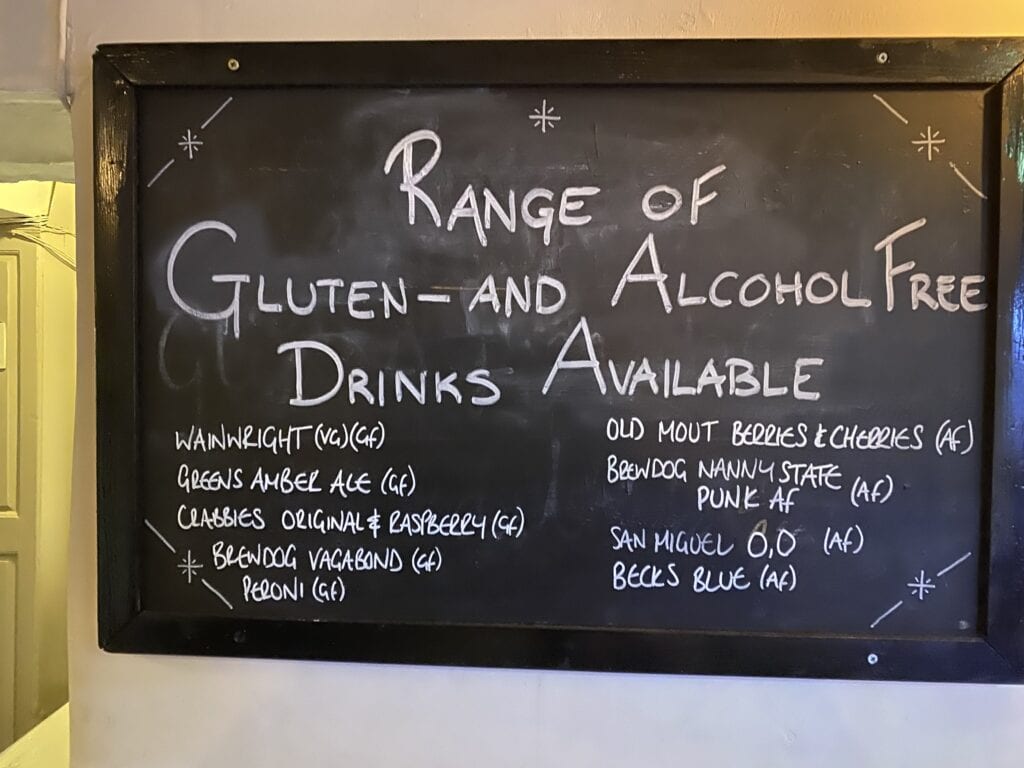 RANGE OF
GLUTEN- AND ALCOHOL FREE
DRINKS AVAILABLE
WAINWRIGHT (VG)(GF)
GREENS AMBER ALE (GF)
CRABBIES ORIGINAL & RASPBERRY (GF)
BREWDOG VAGABOND (GF)
PERONI (GF)
OLD MOUT BERRIES & CHERRIES (AF)
BREWDOG NANNY STATE
PUNK AF (AF)
SAN MIGUEL 0,0 (AF)
BECKS BLUE (AF)